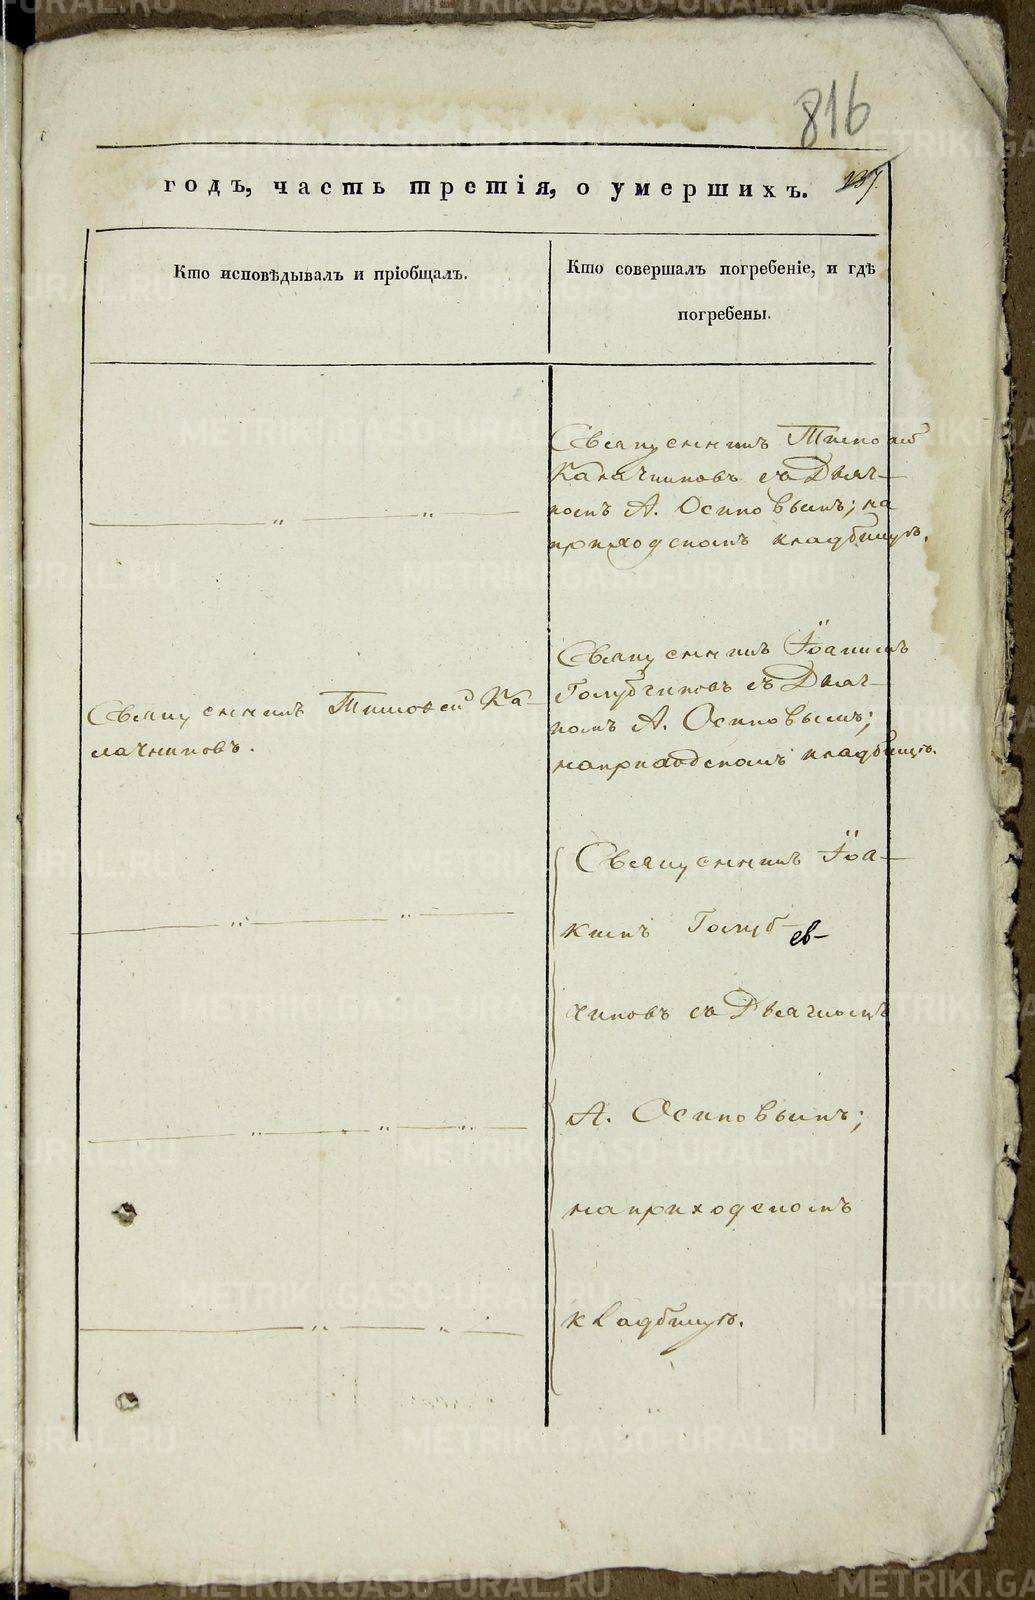 816
годъ, часть третія, о умершихъ.
137.
Кто исповѣдывалъ и пріобщалъ.
Кто совершалъ погребеніе, и гдѣ
погребены.
Священникъ Тимофей
Калачниковъ съ Дьяч-
комъ А. Осиповымъ; на
приходскомъ кладбищѣ.
Священникъ Тимофей Ка-
лачниковъ.
Священникъ Іоакимъ
Голубчиковъ съ Дьяч-
комъ А. Осиповымъ;
на приходскомъ кладбищѣ.
Священникъ Іоа-
кимъ Голуб-
чиковъ съ Дьячкомъ
А. Осиповымъ;
на приходскомъ
кладбищѣ.
METRIKI.GASO-URAL.RU